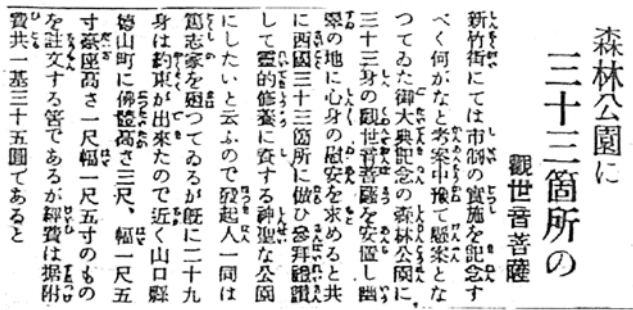 森林公園に
三十三箇所の
觀世音菩薩
新竹街にては市制の實施を記念す
べく何がなと考案中豫て懸案とな
つてゐた御大典記念の森林公園に
三十三身の觀世音菩薩を安置し幽
翠の地に心身の慰安を求めると共
に西國三十三箇所に倣ひ參拜禮讃
して靈的修養に資する神聖な公園
にしたいと云ふので發起人一同は
篤志家を廻つてゐるが既に二十九
身は約束が出來たので近く山口縣
德山町に佛體高さ三尺、幅一尺五
寸臺座高さ一尺幅一尺五寸のもの
を註文する筈であるが經費は据附
費共一基三十五圓であると